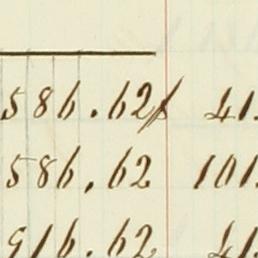 586.62 41.
586.62 101.
916.62 41.